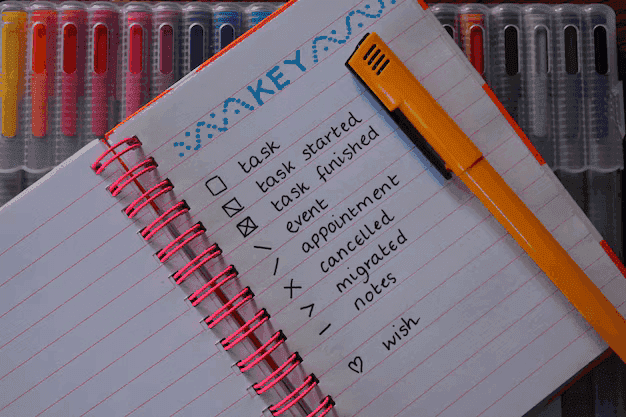 KEY
task
task started
task finished
event
appointment
cancelled
migrated
notes
wish